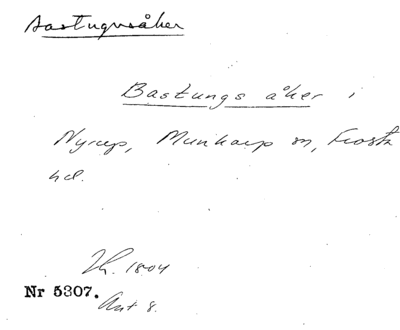 Bastugusåker
Bastungs åker i
Nyrup, Munkarp sn, Frosta
hd.
Lh. 1804
Nr 5307.
Akt 8.